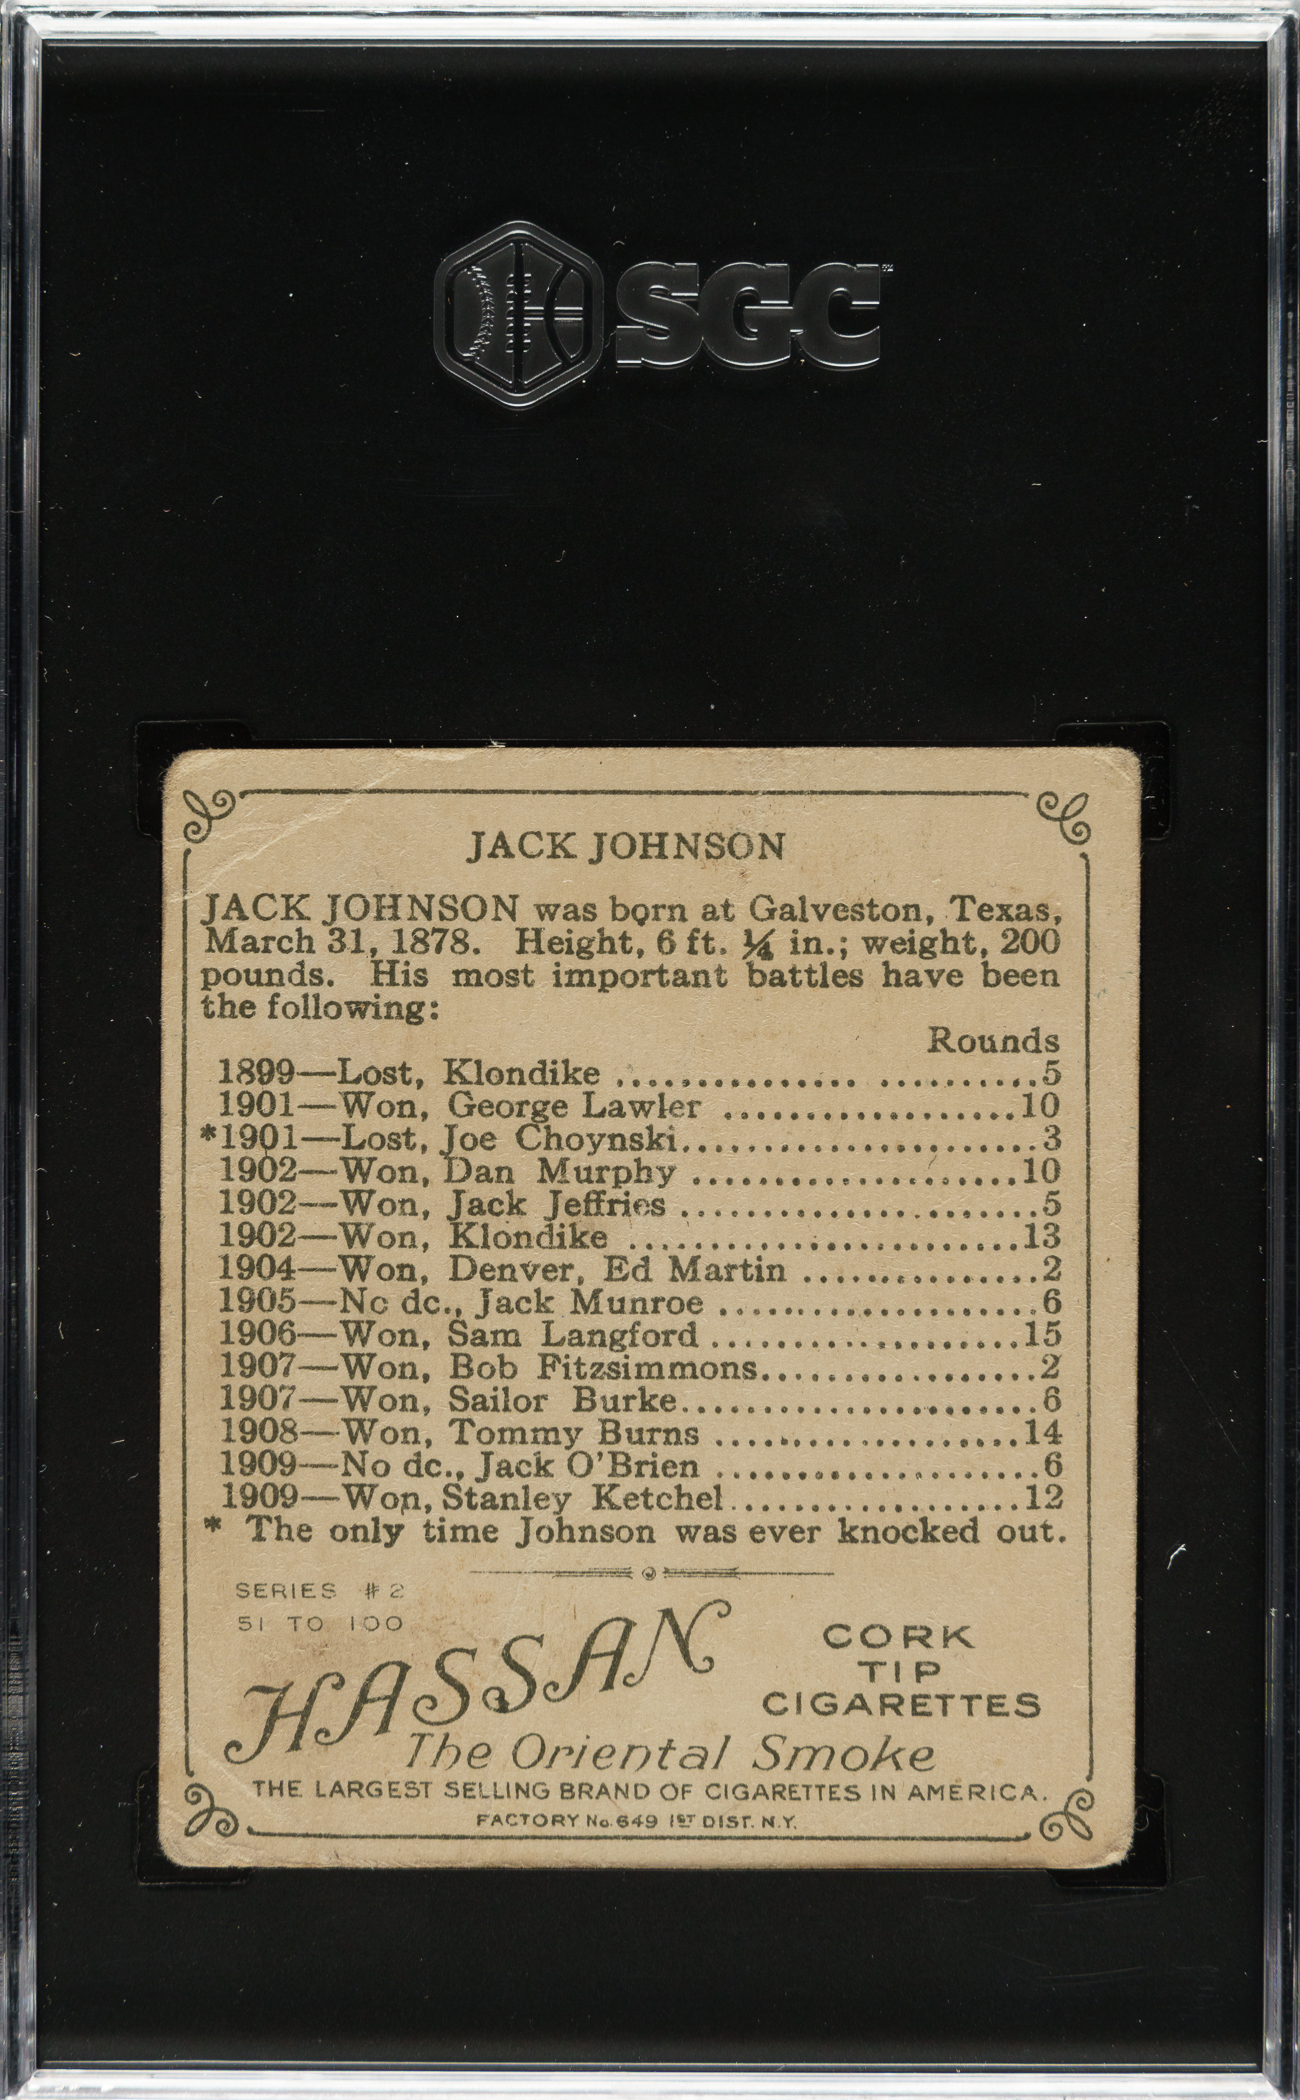 SGC™
JACK JOHNSON
JACK JOHNSON was born at Galveston, Texas,
March 31, 1878. Height, 6 ft. ¼ in.; weight, 200
pounds. His most important battles have been
the following:
Rounds
1899—Lost, Klondike ......................... 5
1901—Won, George Lawler ..................10
*1901—Lost, Joe Choynski......................3
1902—Won, Dan Murphy ....................10
1902—Won, Jack Jeffries ......................5
1902—Won, Klondike ........................13
1904—Won, Denver, Ed Martin ...............2
1905—No dc., Jack Munroe ....................6
1906—Won, Sam Langford ...................15
1907—Won, Bob Fitzsimmons.................2
1907—Won, Sailor Burke......................6
1908—Won, Tommy Burns ...................14
1909—No dc., Jack O'Brien ....................6
1909—Won, Stanley Ketchel..................12
* The only time Johnson was ever knocked out.
SERIES #2
51 TO 100
HASSAN
CORK
TIP
CIGARETTES
The Oriental Smoke
THE LARGEST SELLING BRAND OF CIGARETTES IN AMERICA.
FACTORY No. 649 1ST DIST. N.Y.